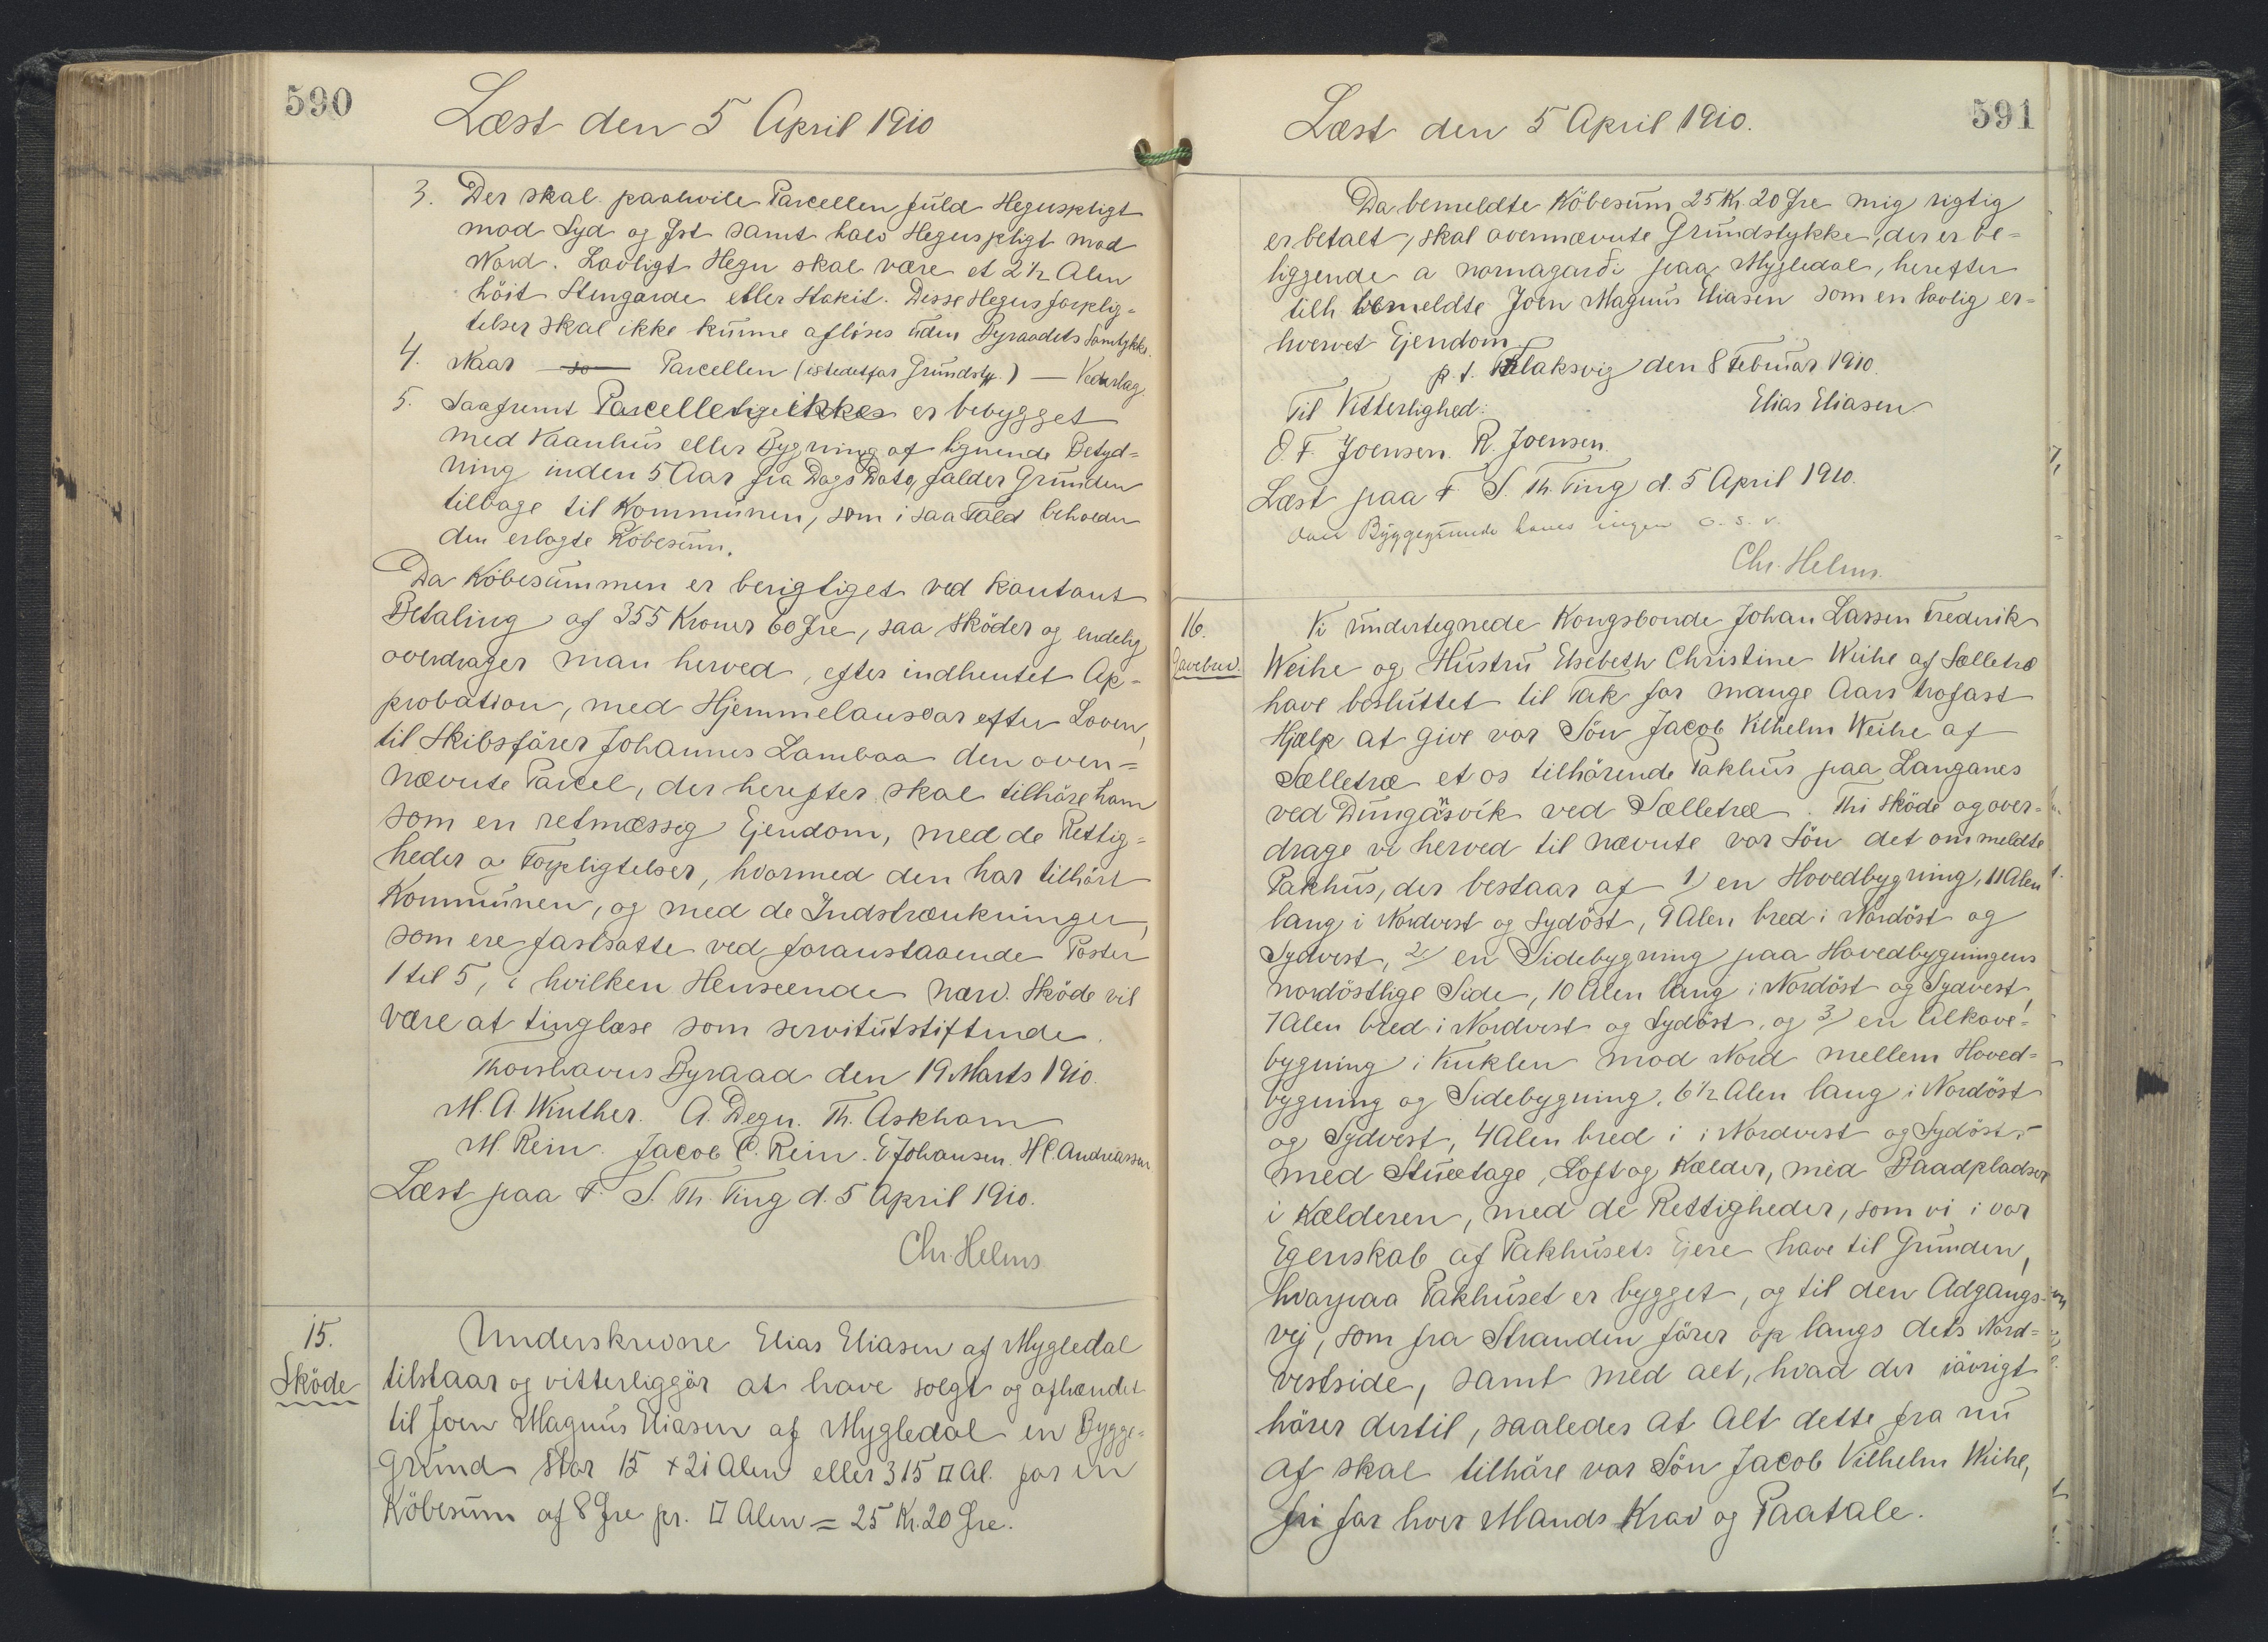 590
Læst den 5 April 1910
3. Der skal paahvile Parcellen fuld Hegnspligt
mod Syd og Øst samt halv Hegnspligt mod
Nord. Lovligt Hegn skal være et 2½ Alen
höit Stengærde eller Stakit. Disse Hegnsforplig-
telser skal ikke kunne aflöses uden Byraadets Samtykke.
4. Naar — so — Parcellen (istedetfor Grundsty.) — Vederlag.
5. Saafremt Parcellen ikke er bebygget
med Vaanhus eller Bygning af lignende Betyd-
ning inden 5 Aar fra Dags Dato, falder Grunden
tilbage til Kommunen, som i saa Fald beholder
den erlagte Köbesum.
Da Köbesummen er berigtiget ved kontant
Betaling af 355 Kroner 60 Øre, saa sköder og endelig
overdrager man herved, efter indhentet Ap-
probation, med Hjemmelansvar efter Loven,
til Skibsförer Johannes Lambaa den oven-
nævnte Parcel, der herefter skal tilhöre ham
som en retmæssig Ejendom, med de Rettig-
heder og Forpligtelser, hvormed den har tilhört
Kommunen, og med de Indskrænkninger,
som ere fastsatte ved foranstaaende Poster
1 til 5, i hvilken Henseende nærv. Sköde vil
være at tinglæse som servitutstiftende.
Thorshavns Byraad den 19 Marts 1910.
M. A. Winther. A. Degn. Th. Askham
M. Rein. Jacob C. Rein. E Johansen. H C. Andreassen
Læst paa F. S. Th. Ting d. 5 April 1910.
Chr. Helms
15.
Sköde
Underskrevne Elias Eliasen af Mygledal
tilstaar og vitterliggör at have solgt og afhændet
til Joen Magnus Eliasen af Mygledal en Bygge-
grund stor 15 × 21 Alen eller 315 □ Al. for en
Köbesum af 8 Øre pr. □ Alen = 25 Kr. 20 Øre.
591
Læst den 5 April 1910.
Da bemeldte Köbesum 25 Kr. 20 Øre mig rigtig
er betalt, skal overnævnte Grundstykke, der er be-
liggende a nornagardi paa Mygledal, herefter
tilh bemeldte Joen Magnus Eliasen som en lovlig er-
hvervet Ejendom.
p. t. Klaksvig den 8 Februar 1910.
Til Vitterlighed: Elias Eliasen
O. F. Joensen. R. Joensen.
Læst paa F. S. Th. Ting d. 5 April 1910.
over Byggegrunde haves ingen o. s. v.
Chr. Helms.
16.
Gavebrev.
Vi undertegnede Kongsbonde Johan Lassen Frederik
Weihe og Hustru Elsebeth Christine Weihe af Sælletræ
have besluttet til Tak for mange Aars trofast
Hjælp at give vor Sön Jacob Vilhelm Weihe af
Sælletræ et os tilhörende Pakhus paa Langanes
ved Dungansvik ved Sælletræ. Thi sköde og over-
drage vi herved til nævnte vor Sön det ommeldte
Pakhus, der bestaar af 1) en Hovedbygning, 11 Alen
lang i Nordvest og Sydöst, 9 Alen bred i Nordöst og
Sydvest, 2) en Sidebygning paa Hovedbygningens
nordöstlige Side, 10 Alen lang i Nordöst og Sydvest,
7 Alen bred i Nordvest og Sydöst, og 3) en Alkove-
bygning i Vinklen mod Nord mellem Hoved-
bygning og Sidebygning, 6½ Alen lang i Nordöst
og Sydvest, 4 Alen bred i i Nordvest og Sydöst, –
med Stueetage, Loft og Kælder, med Baadpladser
i Kælderen, med de Rettigheder, som vi i vor
Egenskab af Pakhusets Ejere have til Grunden,
hvorpaa Pakhuset er bygget, og til den Adgangs-
vej, som fra Stranden förer op langs dets Nord-
vestside, samt med alt, hvad der iövrigt
hörer dertil, saaledes at Alt dette fra nu
af skal tilhöre vor Sön Jacob Vilhelm Weihe,
fri for hver Mands Krav og Paatale.